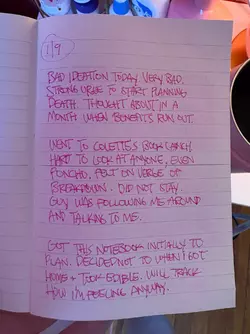 1/9
BAD IDEATION TODAY. VERY BAD.
STRONG URGE TO START PLANNING
DEATH. THOUGHT ABOUT IN A
MONTH WHEN BENEFITS RUN OUT.
WENT TO COLETTE'S BOOK LAUNCH
HARD TO LOOK AT ANYONE, EVEN
PONCHO. FELT ON VERGE OF
BREAKDOWN. DID NOT STAY.
GUY WAS FOLLOWING ME AROUND
AND TALKING TO ME.
GOT THIS NOTEBOOK INITIALLY TO
PLAN. DECIDED NOT TO WHEN I GOT
HOME + TOOK EDIBLE. WILL TRACK
HOW I'M FEELING ANYWAY.